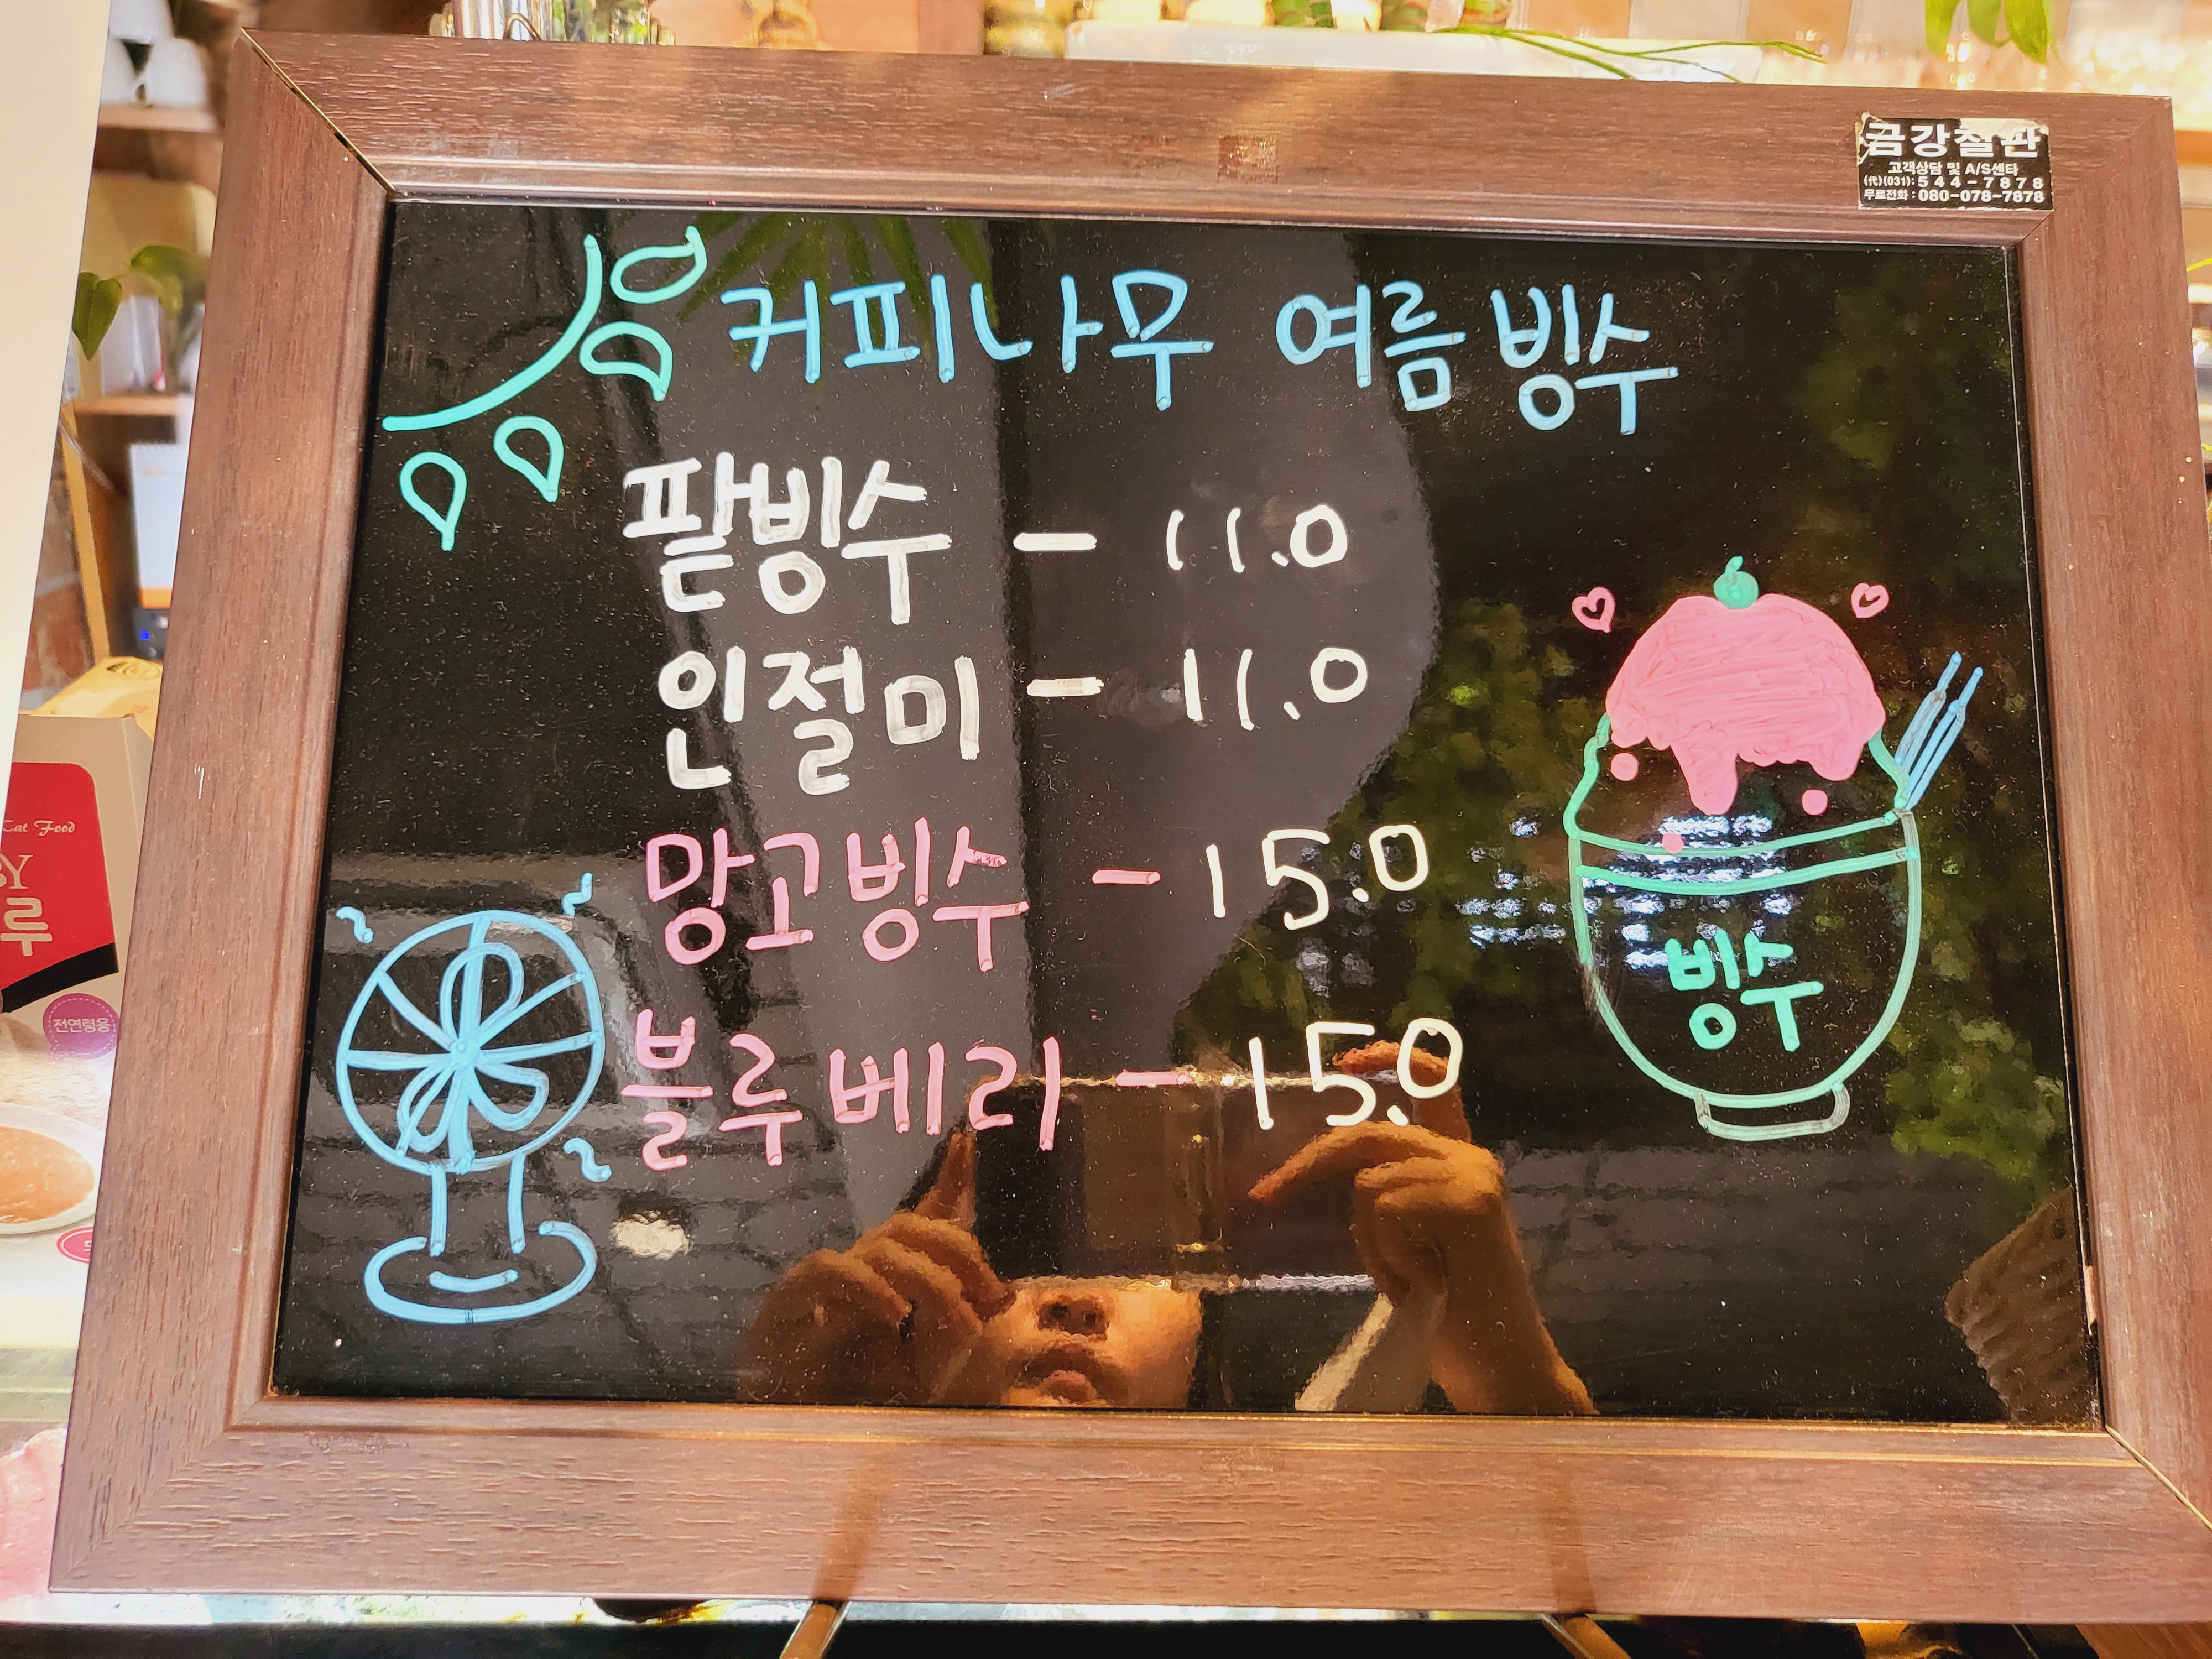 금강칠판
고객상담 및 A/S센타
(代)(031):544-7878
무료전화:080-078-7878
커피나무 여름빙수
팥빙수 - 11.0
인절미 - 11.0
망고빙수 - 15.0
블루베리 - 15.0
빙수
Cat Food
BY
루
전연령용